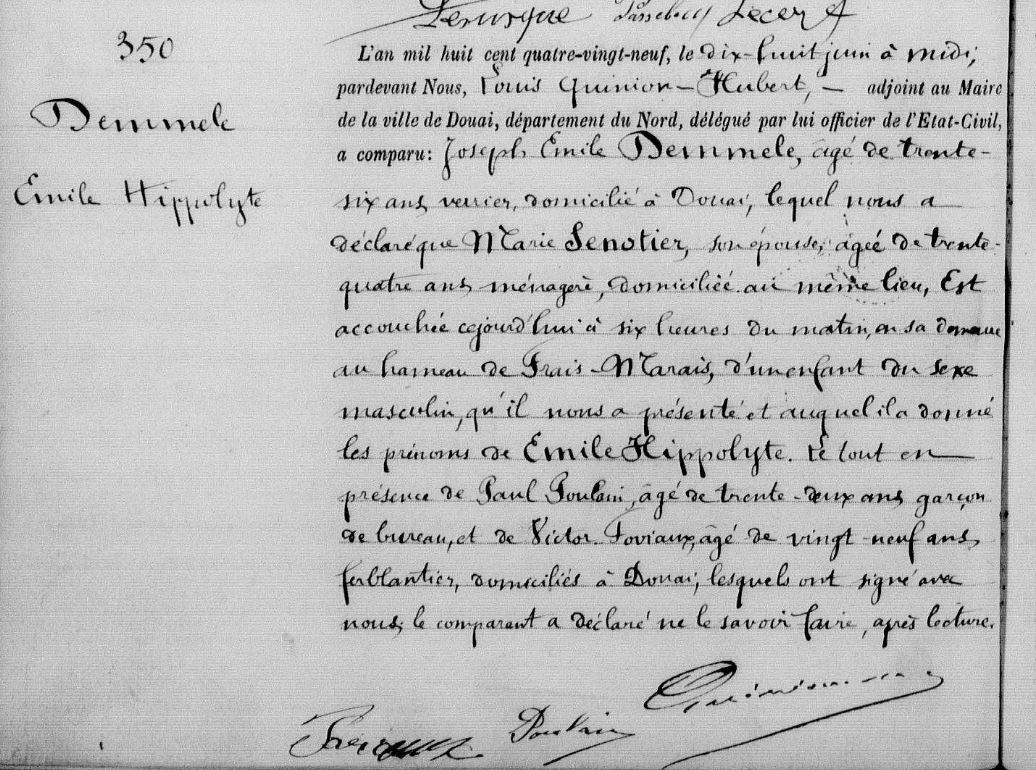 Lecerf
350
L'an mil huit cent quatre-vingt-neuf, le dix-huit juin à midi,
pardevant Nous, Louis Quinion-Hubert, – adjoint au Maire
Demmele
de la ville de Douai, département du Nord, délégué par lui officier de l'Etat-Civil,
a comparu: Joseph Emile Demmele, âgé de trente-
Emile Hippolyte
six ans, verrier, domicilié à Douai, lequel nous a
déclaré que Marie Senotier, son épouse, âgée de trente-
quatre ans, ménagère, domiciliée au même lieu, Est
accouchée cejourd'hui à six heures du matin, en sa demeure
au hameau de Frais-Marais, d'un enfant du sexe
masculin, qu'il nous a présenté et auquel il a donné
les prénoms de Emile Hippolyte. Le tout en
présence de Paul Poulain, âgé de trente-deux ans, garçon
de bureau, et de Victor Foviaux, âgé de vingt-neuf ans,
ferblantier, domiciliés à Douai, lesquels ont signé avec
nous; le comparant a déclaré ne le savoir faire, après lecture.
Poulain